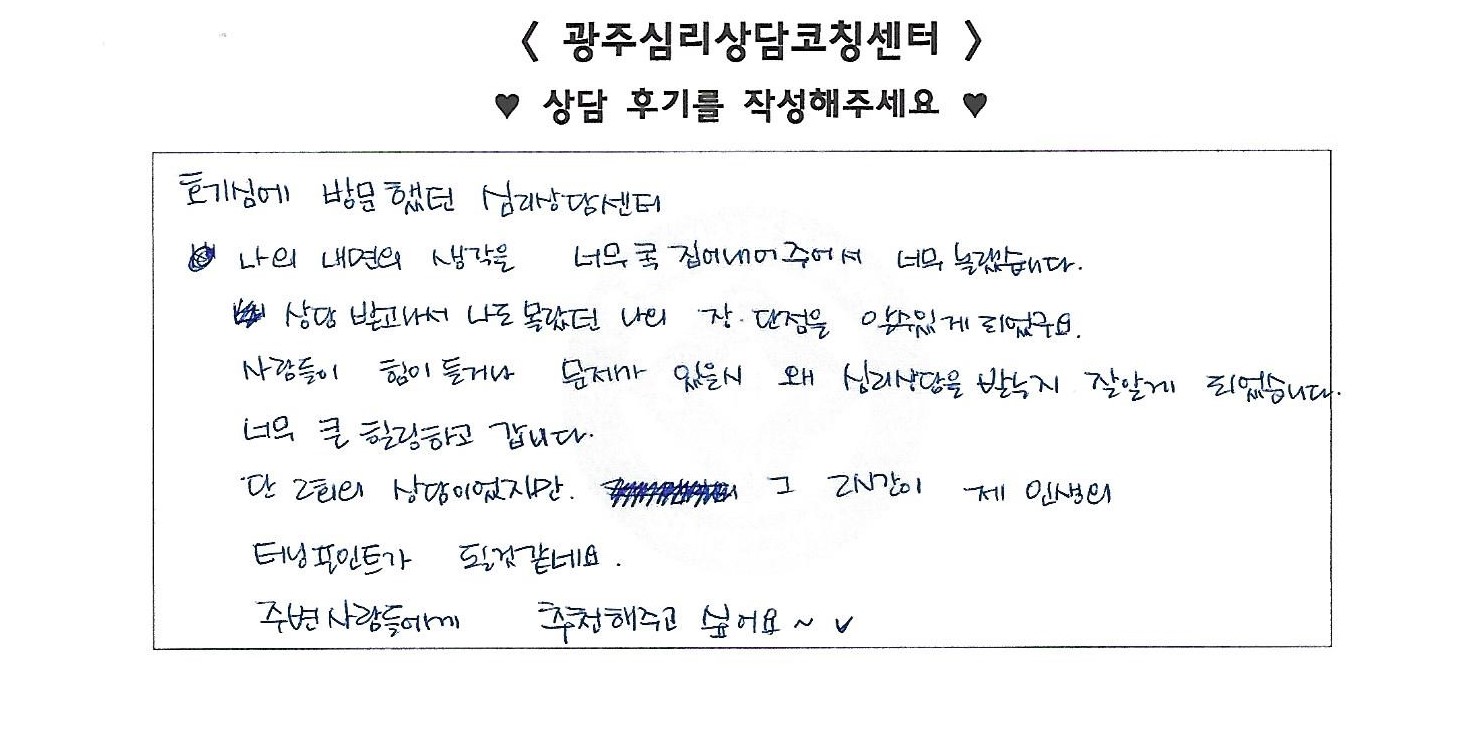 〈 광주심리상담코칭센터 〉
♥ 상담 후기를 작성해주세요 ♥
호기심에 방문했던 심리상담센터
나의 내면의 생각을 너무 쿡 집어내어주어서 너무 놀랬습니다.
상담 받고나서 나도 몰랐던 나의 장·단점을 알수있게 되었구요.
사람들이 힘이 들거나 문제가 있을시 왜 심리상담을 받는지 잘알게 되었습니다.
너무 큰 힐링하고 갑니다.
단 2회의 상담이었지만. 그 2시간이 제 인생의
터닝포인트가 될것같네요.
주변사람들에게 추천해주고 싶어요~ v